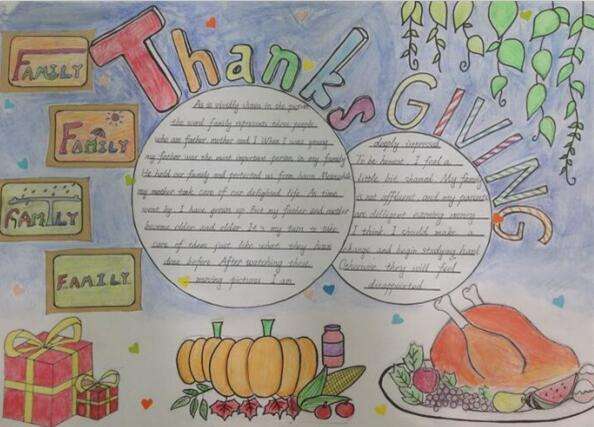 Thanks
GIVING
FAMILY
FAMILY
FAMILY
FAMILY
As is vividly shown in the picture
the word family represents three people
who are father mother and I When I was young
my father was the most important person in my family
He hold our family and protected us from harm Meanwhile
my mother took care of our delighted life As time
went by I have grown up But my father and mother
become older and older It is my turn to take
care of them just like what they have
done before After watching these
moving pictures I am
deeply impressed
To be honest I feel a
little bit shamed My family
is not affluent and my parents
are diligent earning money
I think I should make a
change and begin studying hard
Otherwise they will feel
disappointed